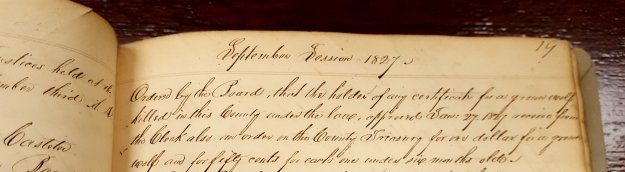 stices held at the
mber third A D
Casleto
September Session 1827
19
Orderd by the Board, that the holder of any certificate for a grown wolf
killed in this County under the law, approved Jan: 27 1827 receive from
the Clerk also an order on the County Treasury for one dollar for a grown
wolf and for fifty cents for each one under six months old